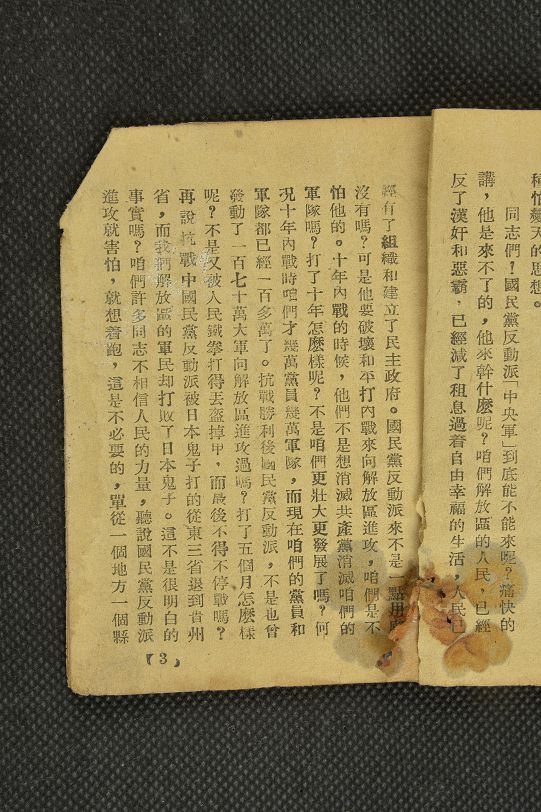 種怕變天的思想。
同志們！國民黨反動派「中央軍」到底能不能來呢？痛快的
講，他是來不了的，他來幹什麼呢？咱們解放區的人民，已經
反了漢奸和惡霸，已經減了租息過着自由幸福的生活，人民已
經有了組織和建立了民主政府。國民黨反動派來不是一點用處
沒有嗎？可是他要破壞和平打內戰來向解放區進攻，咱們是不
怕他的。十年內戰的時候，他們不是想消滅共產黨消滅咱們的
軍隊嗎？打了十年怎麼樣呢？不是咱們更壯大更發展了嗎？何
况十年內戰時咱們才幾萬黨員幾萬軍隊，而現在咱們的黨員和
軍隊都已經一百多萬了。抗戰勝利後國民黨反動派，不是也曾
發動了一百七十萬大軍向解放區進攻過嗎？打了五個月怎麼樣
呢？不是又被人民鐵拳打得丢盔掉甲，而最後不得不停戰嗎？
再說抗戰中國民黨反動派被日本鬼子打的從東三省退到貴州
省，而我們解放區的軍民却打敗了日本鬼子。這不是很明白的
事實嗎？咱們許多同志不相信人民的力量，聽說國民黨反動派
進攻就害怕，就想着跑，這是不必要的，單從一個地方一個縣
【3】